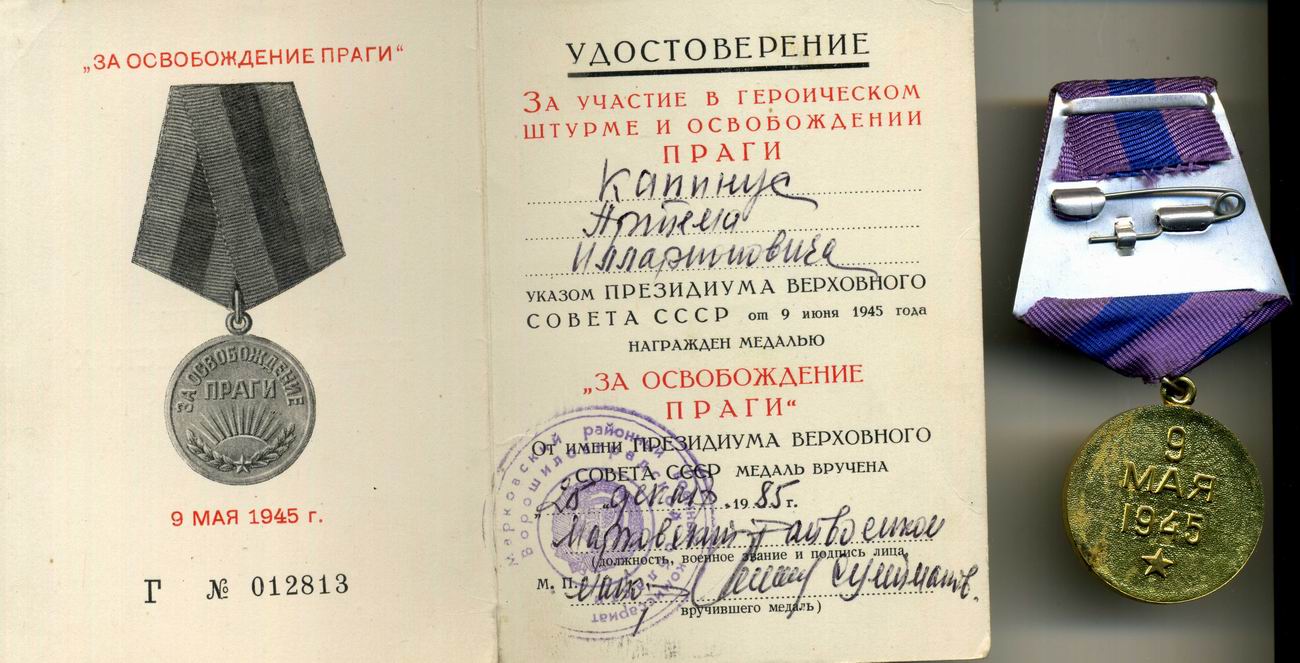 „ЗА ОСВОБОЖДЕНИЕ ПРАГИ“
ЗА ОСВОБОЖДЕНИЕ
ПРАГИ
9 МАЯ 1945 г.
Г № 012813
УДОСТОВЕРЕНИЕ
ЗА УЧАСТИЕ В ГЕРОИЧЕСКОМ
ШТУРМЕ И ОСВОБОЖДЕНИИ
ПРАГИ
Капинус
Артема
Илларионовича
УКАЗОМ ПРЕЗИДИУМА ВЕРХОВНОГО
СОВЕТА СССР от 9 июня 1945 года
НАГРАЖДЕН МЕДАЛЬЮ
„ЗА ОСВОБОЖДЕНИЕ
ПРАГИ“
От имени ПРЕЗИДИУМА ВЕРХОВНОГО
СОВЕТА СССР МЕДАЛЬ ВРУЧЕНА
1985 г.
Марковский
(должность, военное звание и подпись лица,
М. П.
вручившего медаль)
9
МАЯ
1945